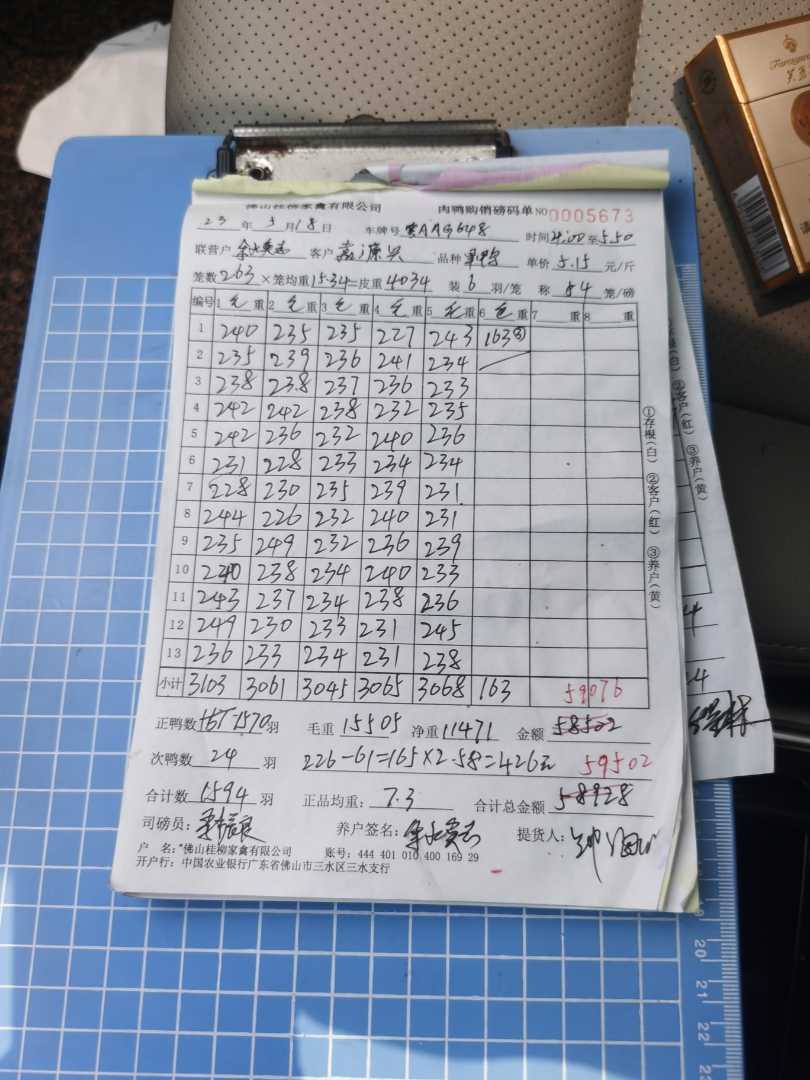 佛山桂柳家禽有限公司 肉鸭购销磅码单 NO 0005673
23 年 3 月 18 日 车牌号 AAG648 时间 4:00 至 5:50
联营户 客户 品种 单价 5.15 元/斤
笼数 263 × 笼均重 15.34 = 皮重 4034 装 6 羽/笼 称 84 笼/磅
编号 1 毛 重 2 毛 重 3 毛 重 4 毛 重 5 毛 重 6 毛 重 7 重 8 重
1 240 235 235 227 243 163③
2 235 239 236 241 234
3 238 238 237 236 233
4 242 242 238 232 235
5 242 236 232 240 236
6 231 228 233 234 234
7 228 230 235 239 231
8 244 226 232 240 231
9 235 249 232 236 239
10 240 238 234 240 233
11 243 237 234 238 236
12 249 230 233 231 245
13 236 233 234 231 238
小计 3103 3061 3045 3065 3068 163 59076
正鸭数 1570 羽 毛重 15505 净重 11471 金额 58502
次鸭数 24 羽 226-61=165×2.58=426元 59502
合计数 1594 羽 正品均重: 7.3 合计总金额 58928
司磅员: 养户签名: 提货人:
户 名: 佛山桂柳家禽有限公司 账号: 444 401 010 400 169 29
开户行: 中国农业银行广东省佛山市三水区三水支行
①存根(白) ②客户(红) ③养户(黄)
②客户(红) ③养户(黄)
20
21
22